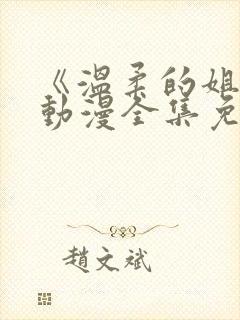 《温柔的姐
动漫全集免
趙文斌